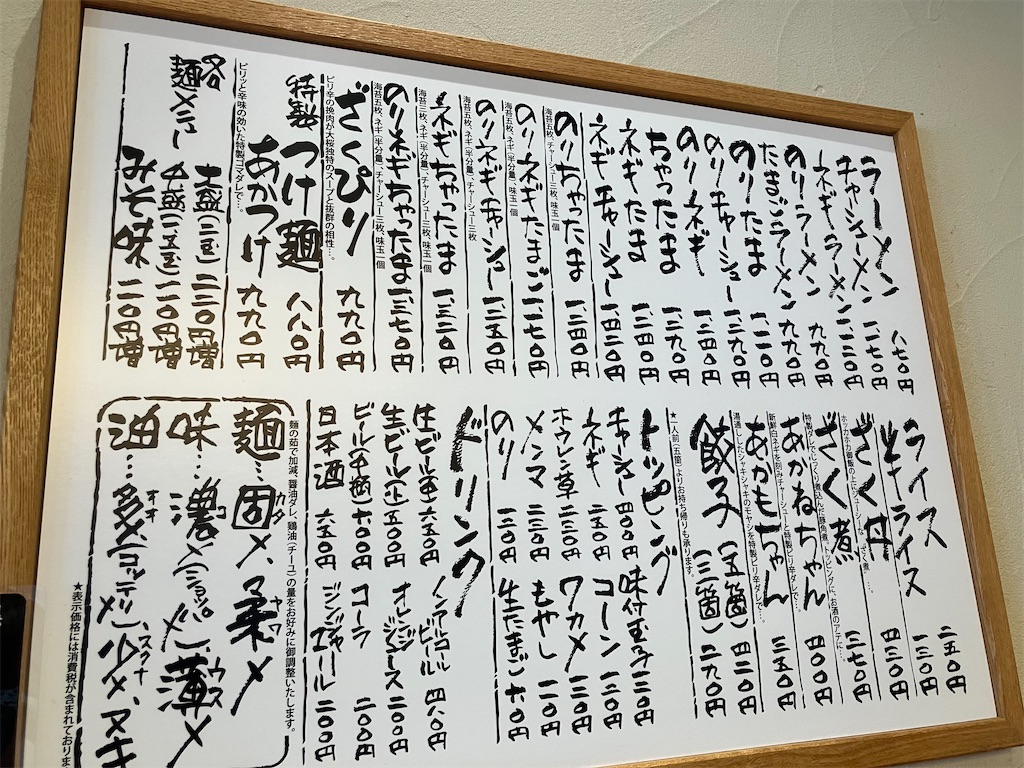 ラーメン 八七〇円
チャーシューメン 一、一七〇円
ネギラーメン 一、一二〇円
のりラーメン 九九〇円
たまごラーメン 九九〇円
のりたま 一、一一〇円
のりチャーシュー 一、二九〇円
のりネギ 一、二四〇円
ちゃったま 一、二九〇円
ネギたま 一、二四〇円
ネギチャーシュー 一、四二〇円
のりちゃったま 一、三四〇円
海苔五枚、チャーシュー三枚、味玉一個
のりネギたまご 一、二七〇円
海苔五枚、ネギ(半分量)、味玉一個
のりネギチャーシュー 一、三五〇円
海苔五枚、ネギ(半分量)、チャーシュー三枚
ネギちゃったま 一、三二〇円
海苔三枚、ネギ(半分量)、チャーシュー三枚、味玉一個
のりネギちゃったま 一、三七〇円
海苔五枚、ネギ(半分量)、チャーシュー三枚、味玉一個
ざくぴり 九九〇円
ピリ辛の挽肉が大桜独特のスープと抜群の相性…。
特製つけ麺 八八〇円
あかつけ 九九〇円
ピリッと辛味の効いた特製ゴマダレで…。
各麺メニュー
大盛(二玉) 二二〇円増
中盛(一・五玉) 一一〇円増
みそ味 一一〇円増
ライス 一三〇円
ざく丼 四三〇円
ざく煮 三七〇円
あかねちゃん 四〇〇円
あかもちゃん 三五〇円
湯通ししたシャキシャキのモヤシを特製ピリ辛ダレで…。
餃子 (五箇) 四二〇円
(三箇) 二九〇円
★一人前(五箇)よりお持ち帰りも承ります。
トッピング
チャーシュー 四〇〇円
ネギ 二五〇円
ホウレン草
メンマ 二三〇円
のり 一二〇円
味付玉子 一三〇円
コーン 一二〇円
ワカメ 一三〇円
もやし 一一〇円
生たまご 六〇円
ドリンク
生ビール(中) 六五〇円
生ビール(小) 五〇〇円
ビール(中瓶) 六〇〇円
日本酒 六五〇円
ノンアルコールビール 四八〇円
オレンジジュース 二〇〇円
コーラ 二〇〇円
ジンジャーエール 二〇〇円
麺の茹で加減、醤油ダレ、鶏油(チーユ)の量をお好みに御調整いたします。
麺…固メ、柔メ
カタ ヤワ
味…濃メ(ショッパメ)、薄メ
コ ウス
油…多メ(コッテリ)、少メ、ヌキ
オオ スクナ
★表示価格には消費税が含まれておりま